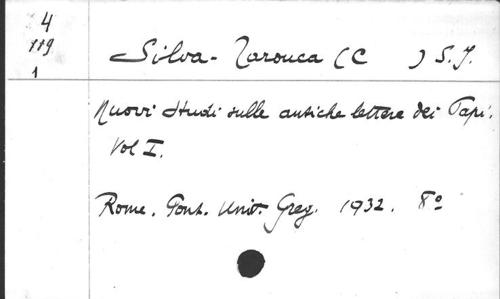 4
119
1
Silva-Tarouca (C ) S.J.
Nuovi Studi sulle antiche lettere dei Papi.
Vol I.
Rome. Pont. Univ. Greg. 1932. 8º